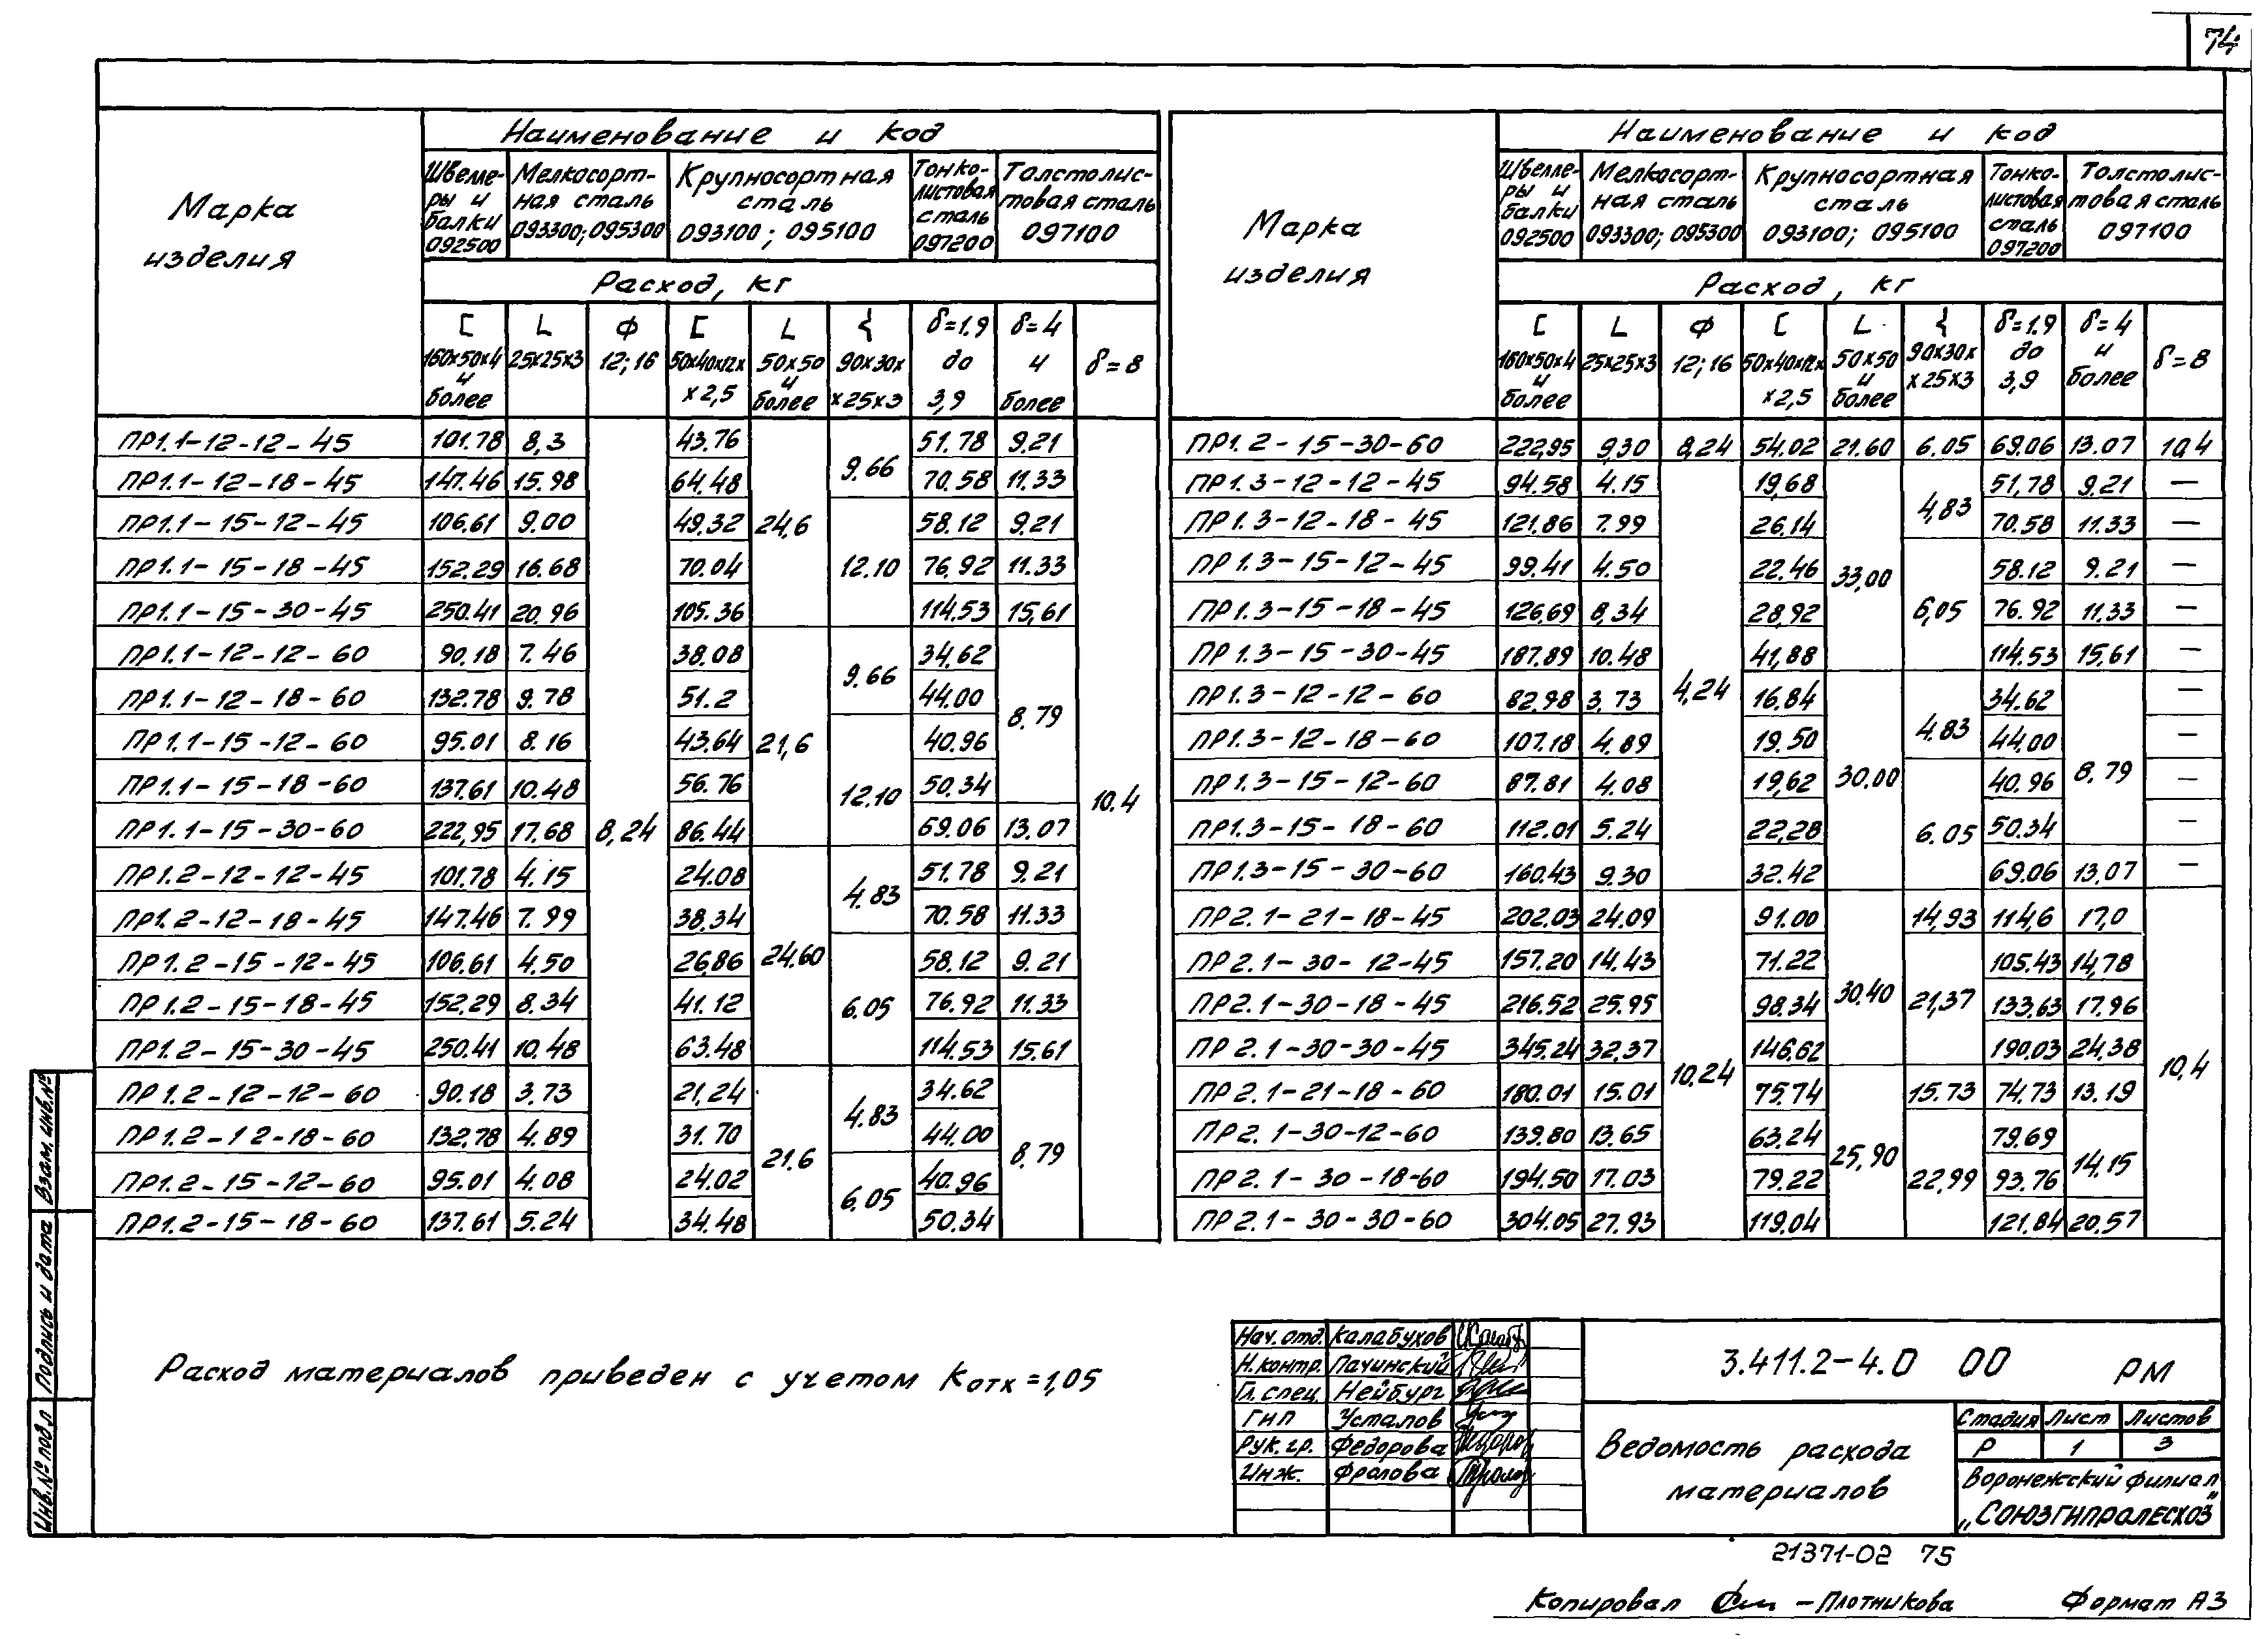 74
Наименование и код
Марка изделия
Швеллеры и балки 092500
Мелкосортная сталь 093300; 095300
Крупносортная сталь 093100; 095100
Тонколистовая сталь 097200
Толстолистовая сталь 097100
Расход, кг
[ 160х50х4 и более
L 25х25х3
ф 12; 16
[ 50х40х12х х2,5
L 50х50 и более
{ 90х30х х25х3
δ=1.9 до 3,9
δ=4 и более
δ=8
ПР1.1-12-12-45 101.78 8,3 43.76 51.78 9.21
9.66
ПР1.1-12-18-45 147.46 15.98 64.48 70.58 11.33
ПР1.1-15-12-45 106.61 9.00 49.32 24,6 58.12 9.21
ПР1.1-15-18-45 152.29 16.68 70.04 12.10 76,92 11.33
ПР1.1-15-30-45 250.41 20.96 105.36 114.53 15,61
ПР1.1-12-12-60 90.18 7.46 38.08 34,62
9.66
ПР1.1-12-18-60 132.78 9.78 51.2 44,00
8.79
ПР1.1-15-12-60 95.01 8.16 43.64 21,6 40.96
ПР1.1-15-18-60 137.61 10.48 56.76 12.10 50.34
10.4
ПР1.1-15-30-60 222,95 17.68 8,24 86.44 69.06 13.07
ПР1.2-12-12-45 101.78 4.15 24.08 51.78 9.21
4.83
ПР1.2-12-18-45 147.46 7.99 38.34 70.58 11.33
ПР1.2-15-12-45 106.61 4.50 26,86 24.60 58.12 9.21
ПР1.2-15-18-45 152.29 8.34 41.12 6.05 76.92 11.33
ПР1.2-15-30-45 250.41 10.48 63.48 114.53 15.61
ПР1.2-12-12-60 90.18 3.73 21,24 34.62
4.83
ПР1.2-12-18-60 132,78 4.89 31.70 44,00
21.6 8.79
ПР1.2-15-12-60 95.01 4.08 24.02 40.96
6.05
ПР1.2-15-18-60 137.61 5.24 34.48 50.34
Наименование и код
Марка изделия
Швеллеры и балки 092500
Мелкосортная сталь 093300; 095300
Крупносортная сталь 093100; 095100
Тонколистовая сталь 097200
Толстолистовая сталь 097100
Расход, кг
[ 160х50х4 и более
L 25х25х3
ф 12; 16
[ 50х40х12х х2,5
L 50х50 и более
{ 90х30х х25х3
δ=1.9 до 3,9
δ=4 и более
δ=8
ПР1.2-15-30-60 222,95 9,30 8,24 54.02 21.60 6.05 69.06 13.07 10,4
ПР1.3-12-12-45 94.58 4.15 19,68 51,78 9.21 —
4,83
ПР1.3-12-18-45 121.86 7.99 26,14 70.58 11.33 —
ПР1.3-15-12-45 99.41 4.50 22,46 33,00 58.12 9.21 —
ПР1.3-15-18-45 126,69 8,34 28,92 6,05 76.92 11.33 —
ПР1.3-15-30-45 187.89 10.48 41,88 114.53 15,61 —
ПР1.3-12-12-60 82.98 3.73 4,24 16,84 34.62 —
4.83
ПР1.3-12-18-60 107.18 4.89 19.50 44,00 —
ПР1.3-15-12-60 87.81 4.08 19,62 30.00 40.96 8.79 —
ПР1.3-15-18-60 112.01 5.24 22,28 6.05 50.34 —
ПР1.3-15-30-60 160.43 9.30 32.42 69.06 13,07 —
ПР2.1-21-18-45 202.03 24.09 91.00 14,93 114,6 17,0
ПР2.1-30-12-45 157.20 14.43 71.22 105.43 14,78
ПР2.1-30-18-45 216.52 25.95 98.34 30,40 21,37 133,63 17.96
ПР2.1-30-30-45 345.24 32.37 146.62 190.03 24,38
10,24 10,4
ПР2.1-21-18-60 180.01 15.01 75.74 15.73 74.73 13.19
ПР2.1-30-12-60 139.80 13.65 63.24 79.69
25,90 14,15
ПР2.1-30-18-60 194.50 17.03 79.22 22,99 93.76
ПР2.1-30-30-60 304.05 27.93 119,04 121.84 20,57
Расход материалов приведен с учетом Котх=1,05
Взам. инв.№
Подпись и дата
Инв.№ подл
Нач. отд. Калабухов
Н.контр. Пачинский
Гл.спец. Нейбург
ГИП Усталов
Рук.гр. Федорова
Инж. Фролова
3.411.2-4.0 00 РМ
Ведомость расхода материалов
Стадия Лист Листов
Р 1 3
Воронежский филиал
„Союзгипролесхоз”
21371-02 75
Копировал — Плотникова Формат А3